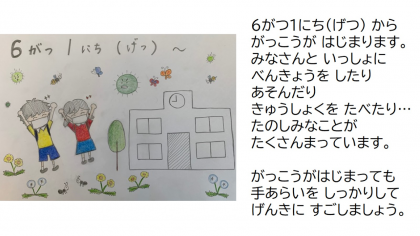 6がつ1にち(げつ)～
6がつ1にち(げつ) から
がっこうが はじまります。
みなさんと いっしょに
べんきょう したり
あそんだり
きゅうしょくを たべたり…
たのしみなことが
たくさんまっています。
がっこうがはじまっても
手あらいを しっかりして
げんきに すごしましょう。